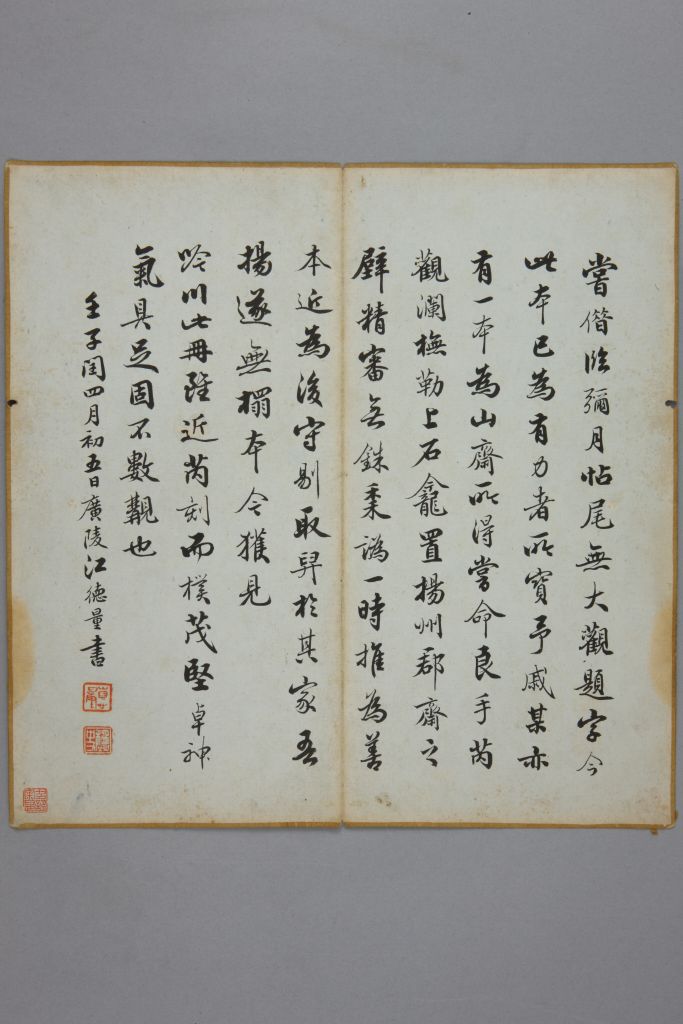 嘗借臨彌月帖尾無大觀題字今
此本已為有力者所寶予戚某亦
有一本為山齋所得嘗命良手芮
觀瀾橅勒上石龕置揚州郡齋之
壁精審無銖黍譌一時推為善
本近為後守剔取舁於其家吾
揚遂無搨本今獲見
吟川此冊雖近芮刻而樸茂堅卓神
氣具足固不數覯也
壬子閏四月初五日廣陵江德量書